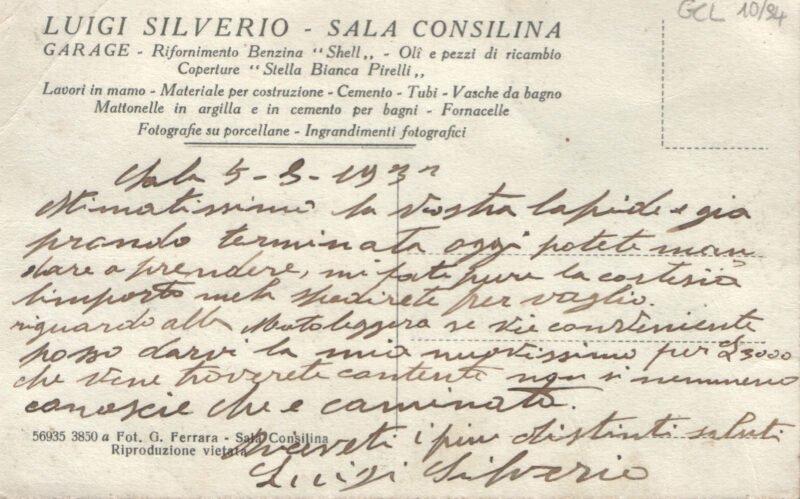 GCL 10/94
LUIGI SILVERIO - SALA CONSILINA
GARAGE - Rifornimento Benzina “Shell„ - Olî e pezzi di ricambio
Coperture “Stella Bianca Pirelli„
Lavori in mamo - Materiale per costruzione - Cemento - Tubi - Vasche da bagno
Mattonelle in argilla e in cemento per bagni - Fornacelle
Fotografie su porcellane - Ingrandimenti fotografici
Sala 5-9-193
Stimatissimo la Vostra lapide e gia
prando terminata oggi potete man
dare a prendere, mi fati pure la cortesia
limporto mela spedirete per vaglio.
riguardo alla Motoleggera se vie conveniente
posso darvi la mia nuovissimo per £3000
che vene troverete contenti non si nemmeno
conoscie che e caminata.
56935 3850 a Fot. G. Ferrara - Sala Consilina
Riproduzione vietata
Riceveti i piu distinti saluti
Luigi Silverio